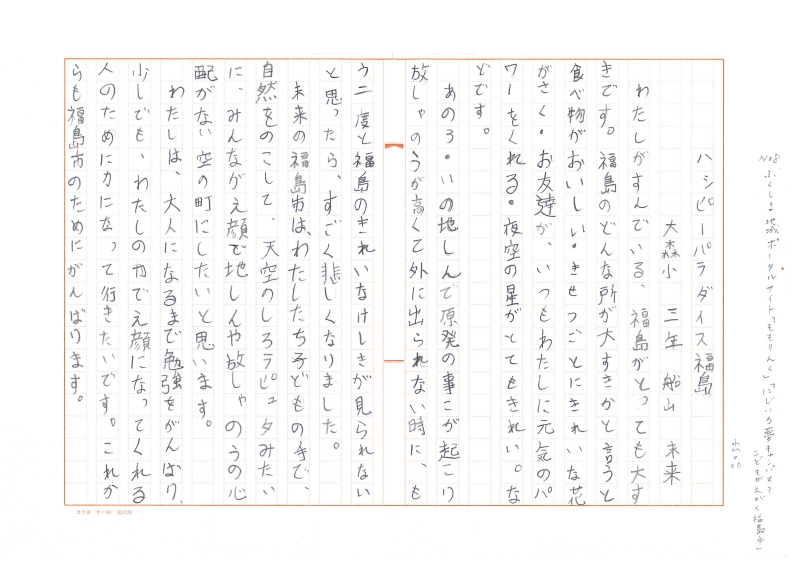 No8
ふくしま地域ポータルサイト「ももりんく」「にじいろ夢キャンバス？
こどもがえがく福島市」
ハッピーパラダイス福島
大森小　三年　船山　未来
わたしがすんでいる、福島がとっても大す
きです。福島のどんな所が大すきかと言うと
食べ物がおいしい・きせつごとにきれいな花
がさく・お友達が、いつもわたしに元気のパ
ワーをくれる・夜空の星がとてもきれい。な
どです。
あの３・11の地しんで原発の事こが起こり
放しゃのうが高くて外に出られない時に、も
う二度と福島のきれいなけしきが見られない
と思ったら、すごく悲しくなりました。
未来の福島市は、わたしたち子どもの手で、
自然をのこして、天空のしろラピュタみたい
に、みんながえ顔で地しんや放しゃのうの心
配がない空の町にしたいと思います。
わたしは、大人になるまで勉強をがんばり、
少しでも、わたしの力でえ顔になってくれる
人のために力になって行きたいです。これか
らも福島市のためにがんばります。
コクヨ　ケ－10　20×20